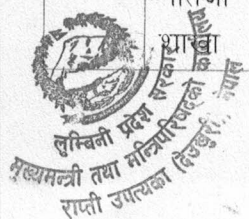 शाखा
लुम्बिनी प्रदेश सरकार
मुख्यमन्त्री तथा मन्त्रिपरिषद्को
राप्ती उपत्यका (देउखुरी), नेपाल